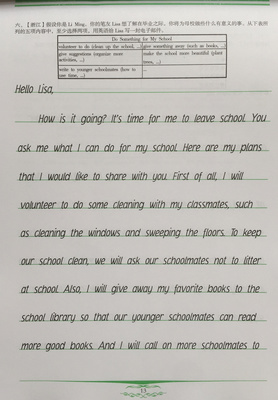 六、【浙江】假设你是 Li Ming，你的笔友 Lisa 想了解在毕业之际，你将为母校做些什么有意义的事。从下表所
列的五项内容中，至少选择两项，用英语给 Lisa 写一封电子邮件。
Do Something for My School
volunteer to do (clean up the school, ...) give something away (such as books, ...)
give suggestions (organize more activities, ...) make the school more beautiful (plant trees, ...)
write to younger schoolmates (how to use time, ...) ...
Hello Lisa,
How is it going? It's time for me to leave school. You
ask me what I can do for my school. Here are my plans
that I would like to share with you. First of all, I will
volunteer to do some cleaning with my classmates, such
as cleaning the windows and sweeping the floors. To keep
our school clean, we will ask our schoolmates not to litter
at school. Also, I will give away my favorite books to the
school library so that our younger schoolmates can read
more good books. And I will call on more schoolmates to
13